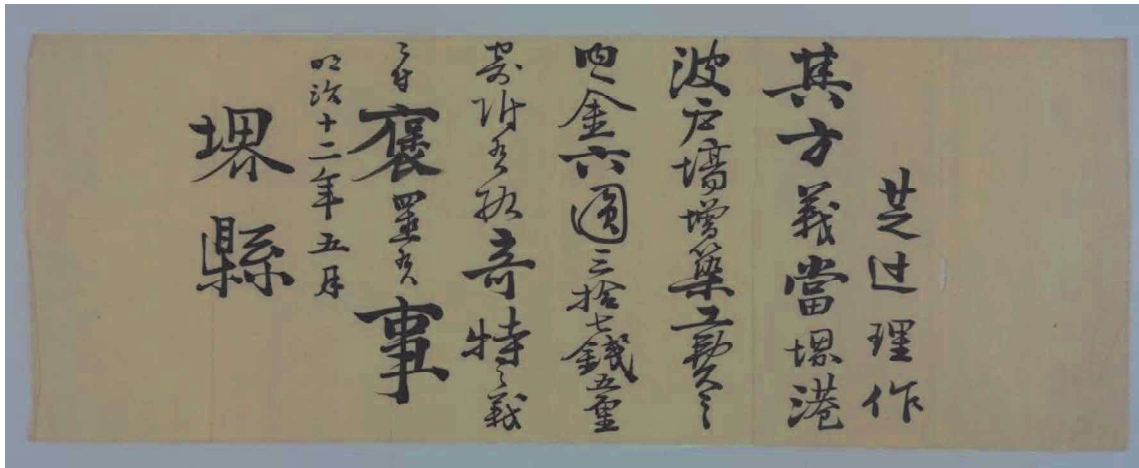 芝辻理作
其方義當堺港
波戸塲増築工費之
内金六圓三拾七錢五厘
寄附候段奇特之義
ニ付褒置候事
明治十二年五月
堺縣